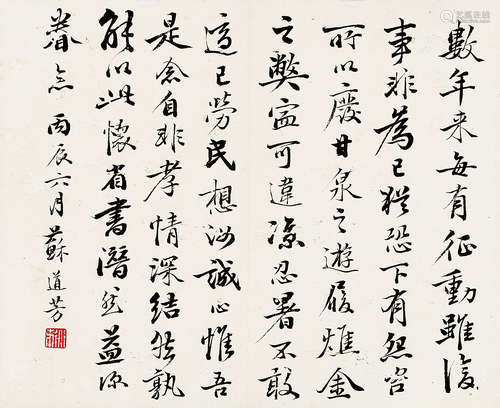 數年来每有征動雖復
事非為己猶恐下有怨咨
所以廢甘泉之遊履燋金
之弊寧可違涼忍暑不敢
適己勞民想汝誠心惟吾
是念自非孝情深結孰
能以此懷省書潸然益深
眷念丙辰六月蘇道芳